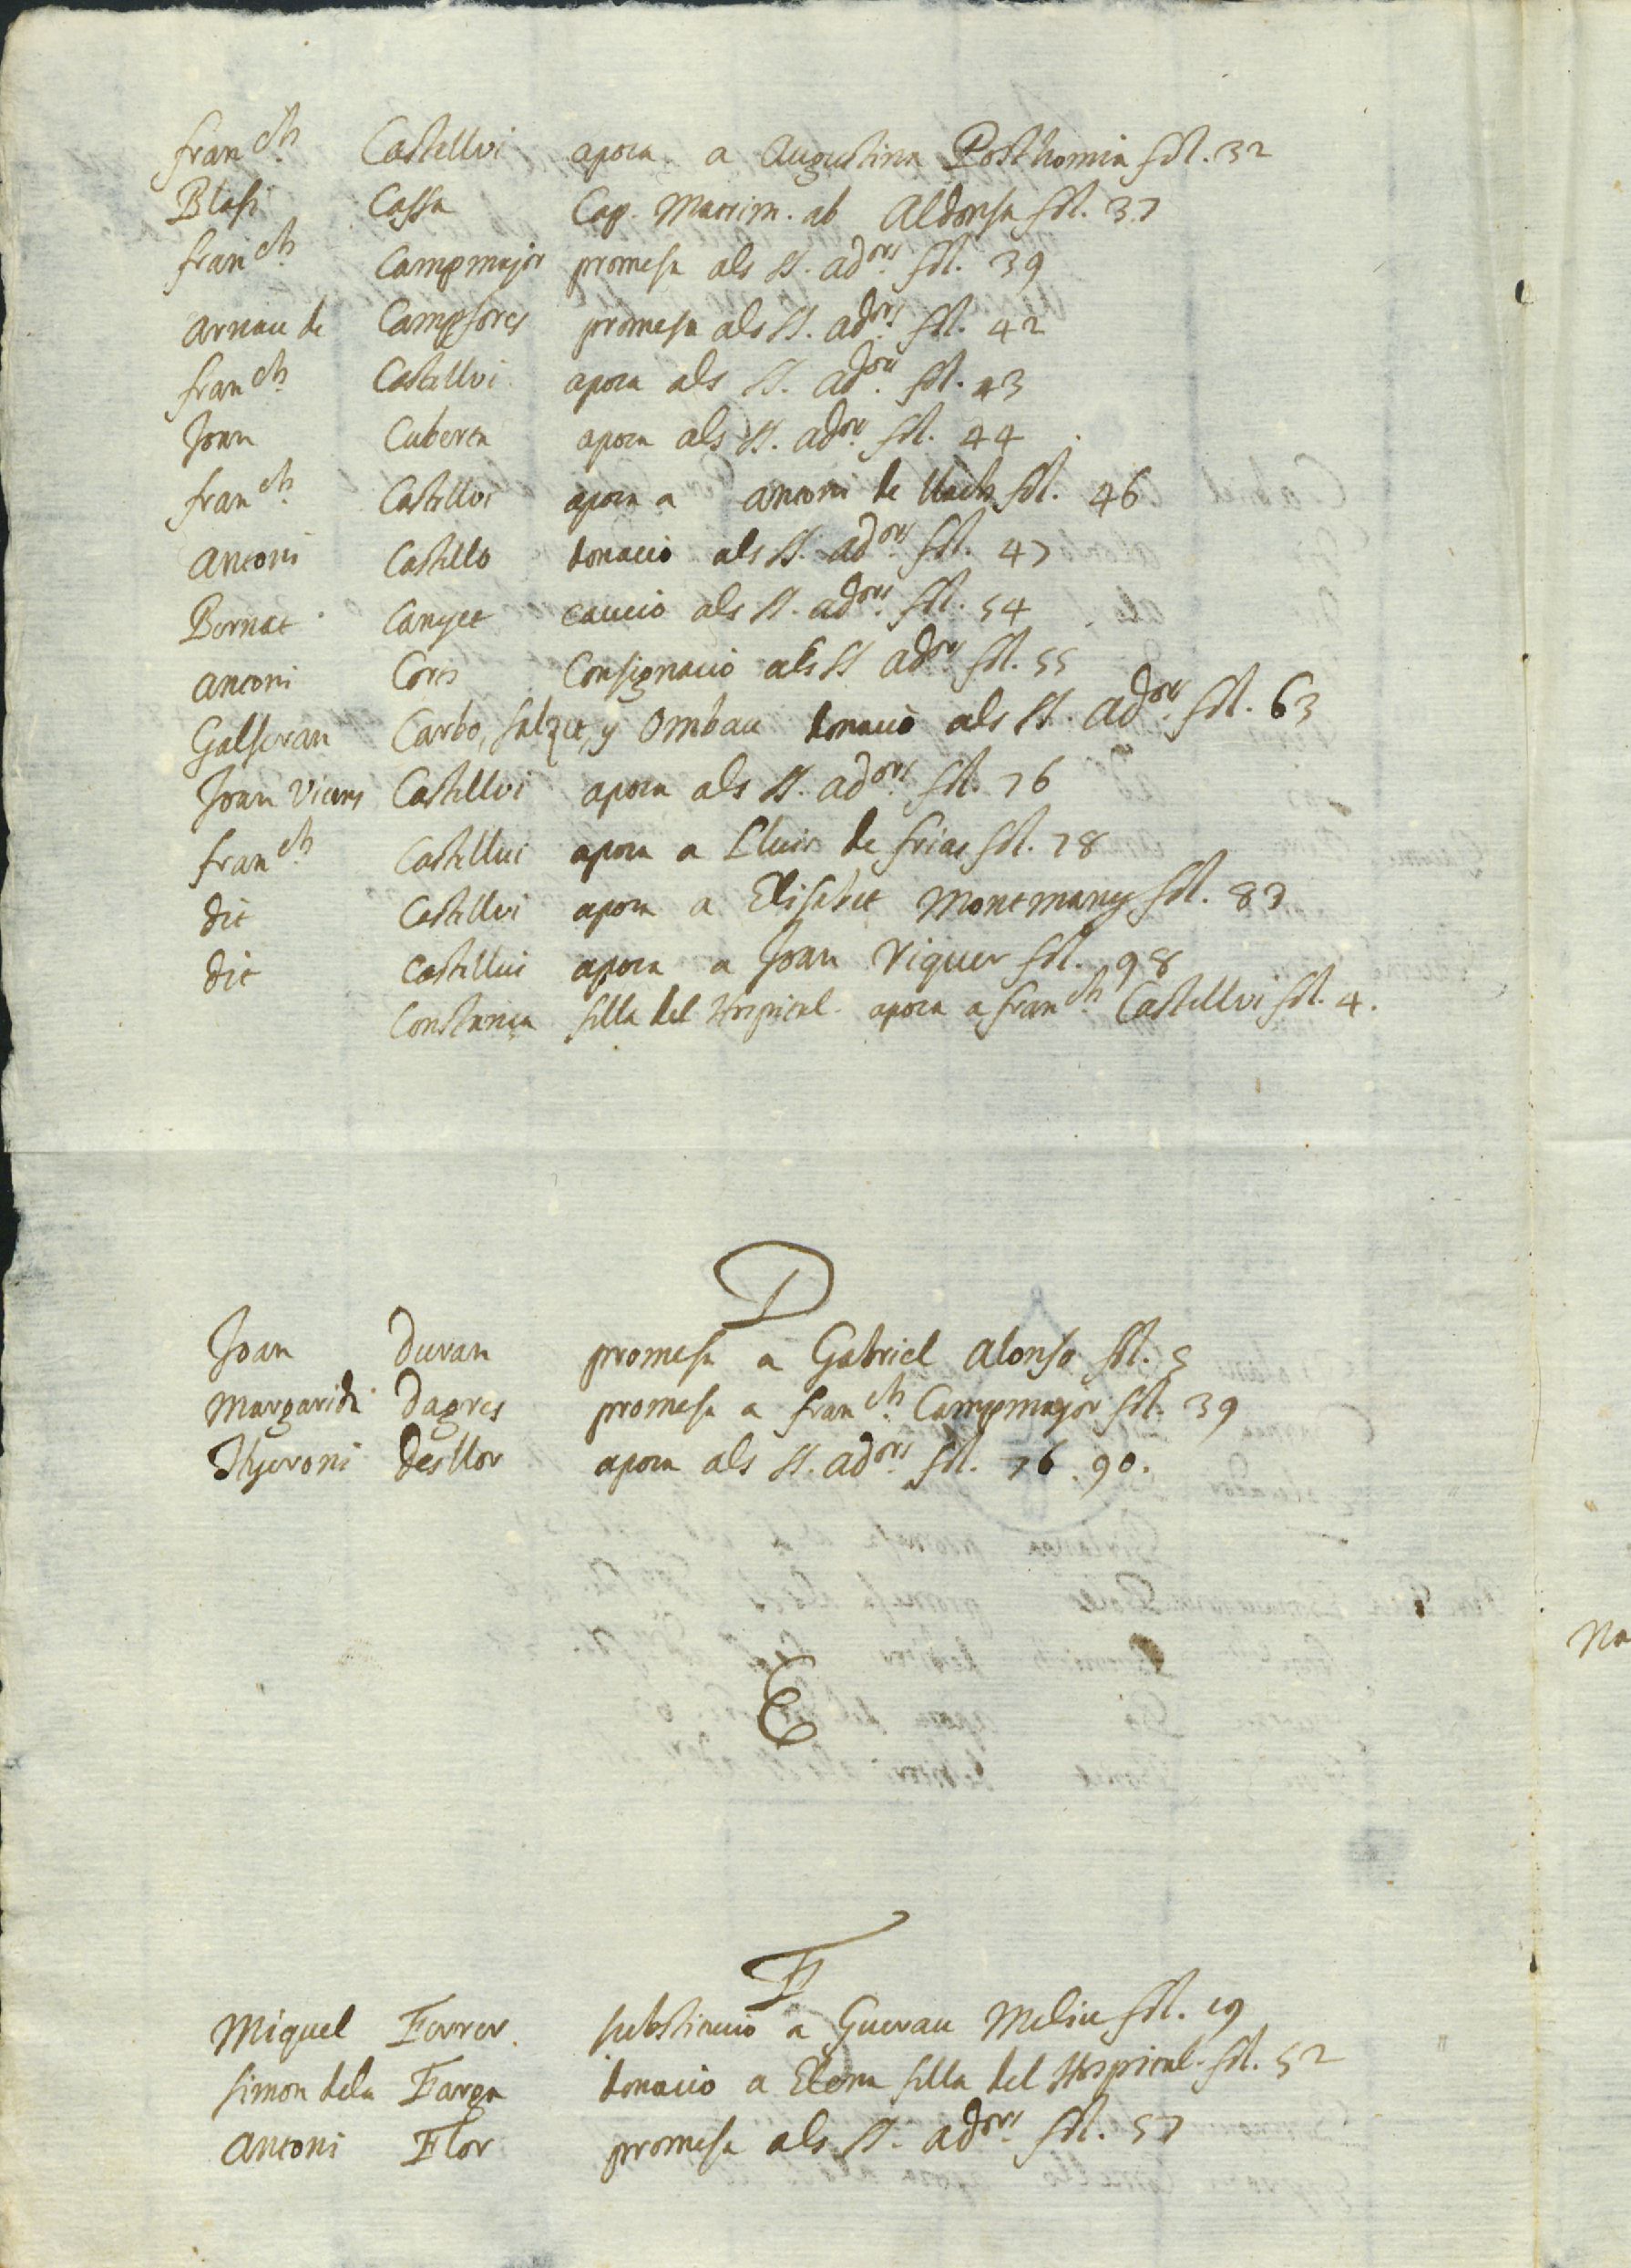 Fran.ch Castellvi apoca a Augustina Posthomia fol. 32
Blasi Cassa Cap. Matrim. ab Aldonsa fol. 37
fran.ch Campmajor promesa als SS. ad.ors fol. 39
Arnau de Campsores promesa als SS. ad.ors fol. 42
fran.ch Castellvi apoca als SS. ad.ors fol. 43
Joan Cuberta apoca als SS. ad.ors fol. 44
fran.ch Castellvi apoca a Antoni de Uachs fol. 46
Antoni Castello donacio als SS. ad.ors fol. 47
Bernat Canyet caucio als SS. ad.ors fol. 54
Antoni Coris Consignacio als SS ad.ors fol. 55
Galseran Carbo, Salzet, y Ombau donacio als SS. ad.ors fol. 63
Joan Vicens Castellvi apoca als SS. ad.ors fol. 76
fran.ch Castellvi apoca a Lluis de frias fol. 78
dit Castellvi apoca a Elisabet Montmany fol. 87
dit Castellvi apoca a Joan Viguer fol. 98
Constança filla del Hospital. apoca a fran.ch Castellvi fol. 4.
D
Joan Duran promesa a Gabriel Alonso fol. 5
Margarida Dagres promesa a fran.ch Campmajor fol. 39
Hyeroni Desllor apoca als SS. ad.ors fol. 76. 90.
E
F
Miquel Ferrer. substitucio a Guerau Meliu fol. 19
Simon dela Farga donacio a Elena filla del Hospital. fol. 52
Antoni Flor promesa als SS. ad.ors fol. 57
Na